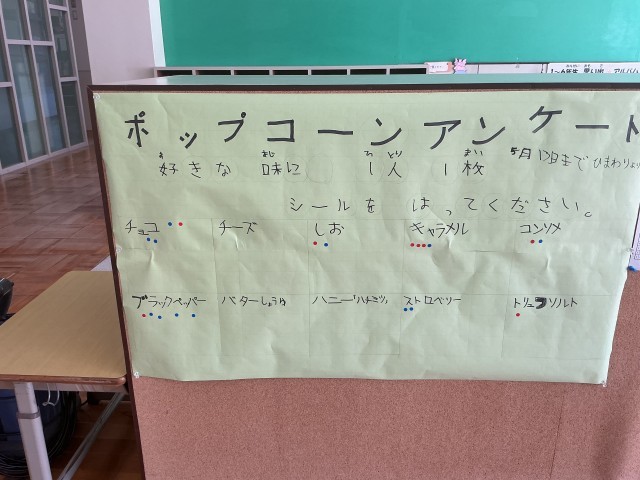 1~6年生 思い出 アルバム
ポップコーンアンケート
好きな 味に 1人 1枚 5月13日まで ひまわり
シールを はってください。
チョコ チーズ しお キャラメル コンソメ
ブラックペッパー バターしょうゆ ハニー(ハチミツ) ストロベリー トリュフソルト